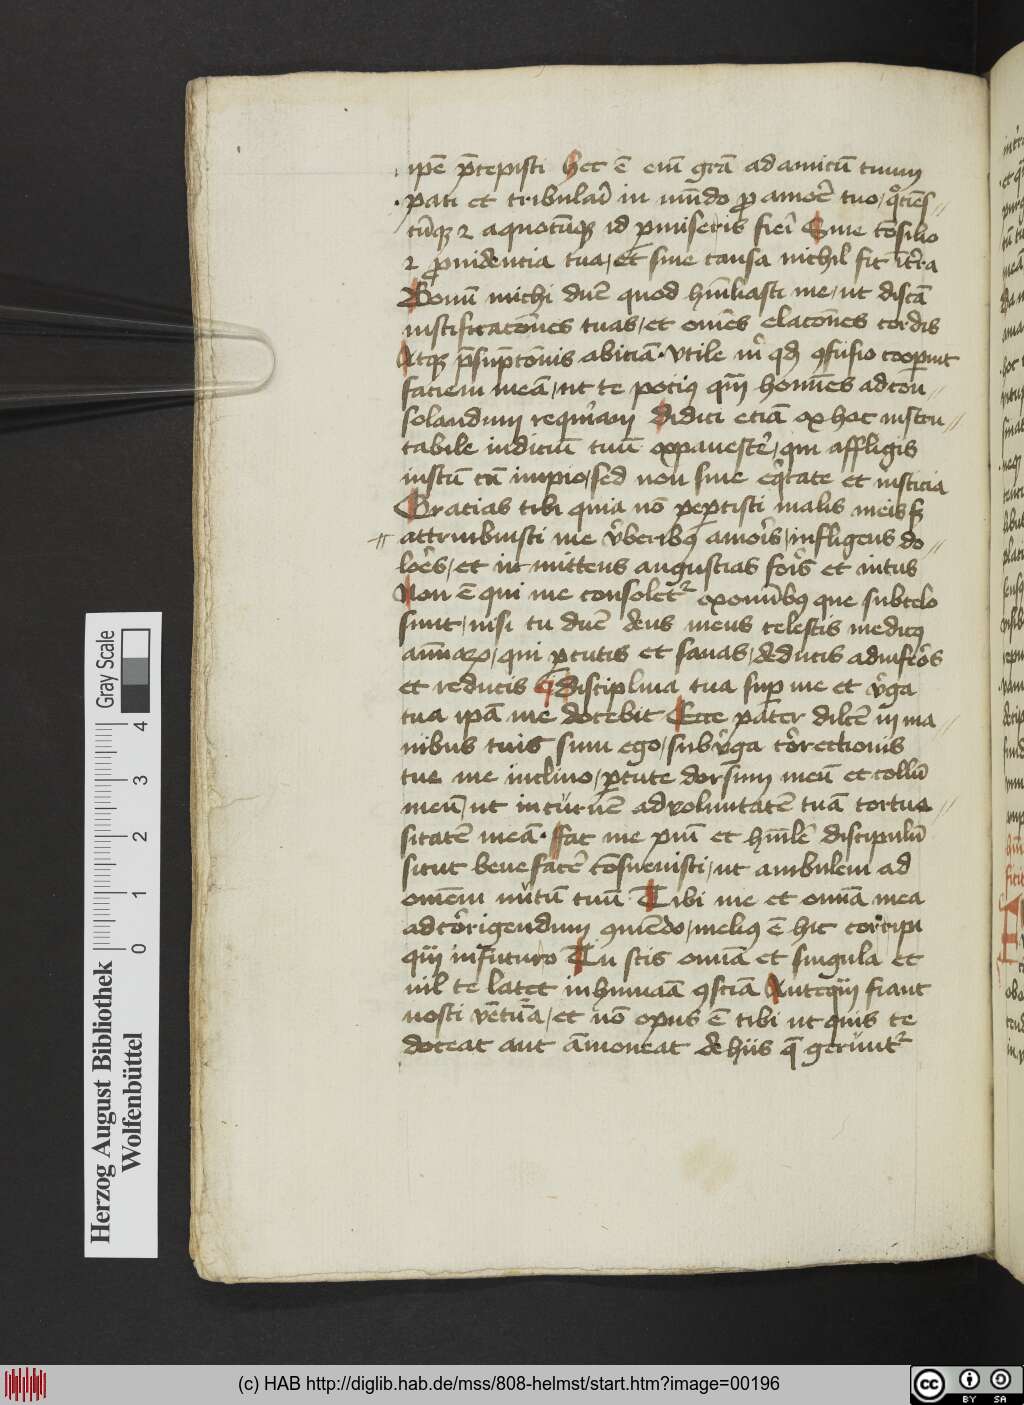 ipē p̄cepisti Hec ē eiū grā ad amicū tuum
pati et tribulari in mūdo pro amore tuo, qociēs
cūq; et a quocūq; id permiseris fieri Sine cōsilio
et prouidencia tua, et sine causa nichil fit in terra
Bonū michi dne quod hūiliasti me, ut discā
iustificacōnes tuas, et omēs elacōnes cordis
Atq; p̄supcōnis abiciā. Utile m̄ qd confusio cooperuit
faciem meā, ut te pociꝰ quā homīes ad con
solandum requiram Didici eciā ex hoc inscru
tabile iudiciū tuū expauescere, qui affligis
iustū cū impio, sed non sine equitate et iusticia
Gracias tibi quia nō pepercisti malis meis sꝫ
attriuibuisti me verberibꝰ amoris, infligens do
lores, et inmittens angustias foris et intus
Non ē qui me consoletur ex omībꝰ que sub celo
sunt, nisi tu dne deus meus celestis medicꝰ
aīarum, qui percutis et sanas, deducis ad inferos
et reducis Disciplina tua super me et virga
tua ipā me docebit Ecce pater dilcē in ma
nibus tuis sum ego, sub virga correctionis
tue me inclino, percute dorsum meū et collū
meū, ut incuruē ad voluntatē tuā tortuo
sitatē meā. Fac me piū et hūilē discipulū
sicut bene facere cōsueuisti, ut ambulem ad
omēm nutū tuū. Tibi me et omīa mea
ad corrigendum cōmēdo, meliꝰ ē hic corripi
quā in futuro Tu scis omīa et singula et
nil te latet in humana consciā Antequā fiant
nosti ventura, et nō opus ē tibi ut quis te
doceat aut āmoneat de hiis que geruntur
Herzog August Bibliothek
Wolfenbüttel
0 1 2 3 4
Gray Scale
(c) HAB http://diglib.hab.de/mss/808-helmst/start.htm?image=00196
cc BY SA